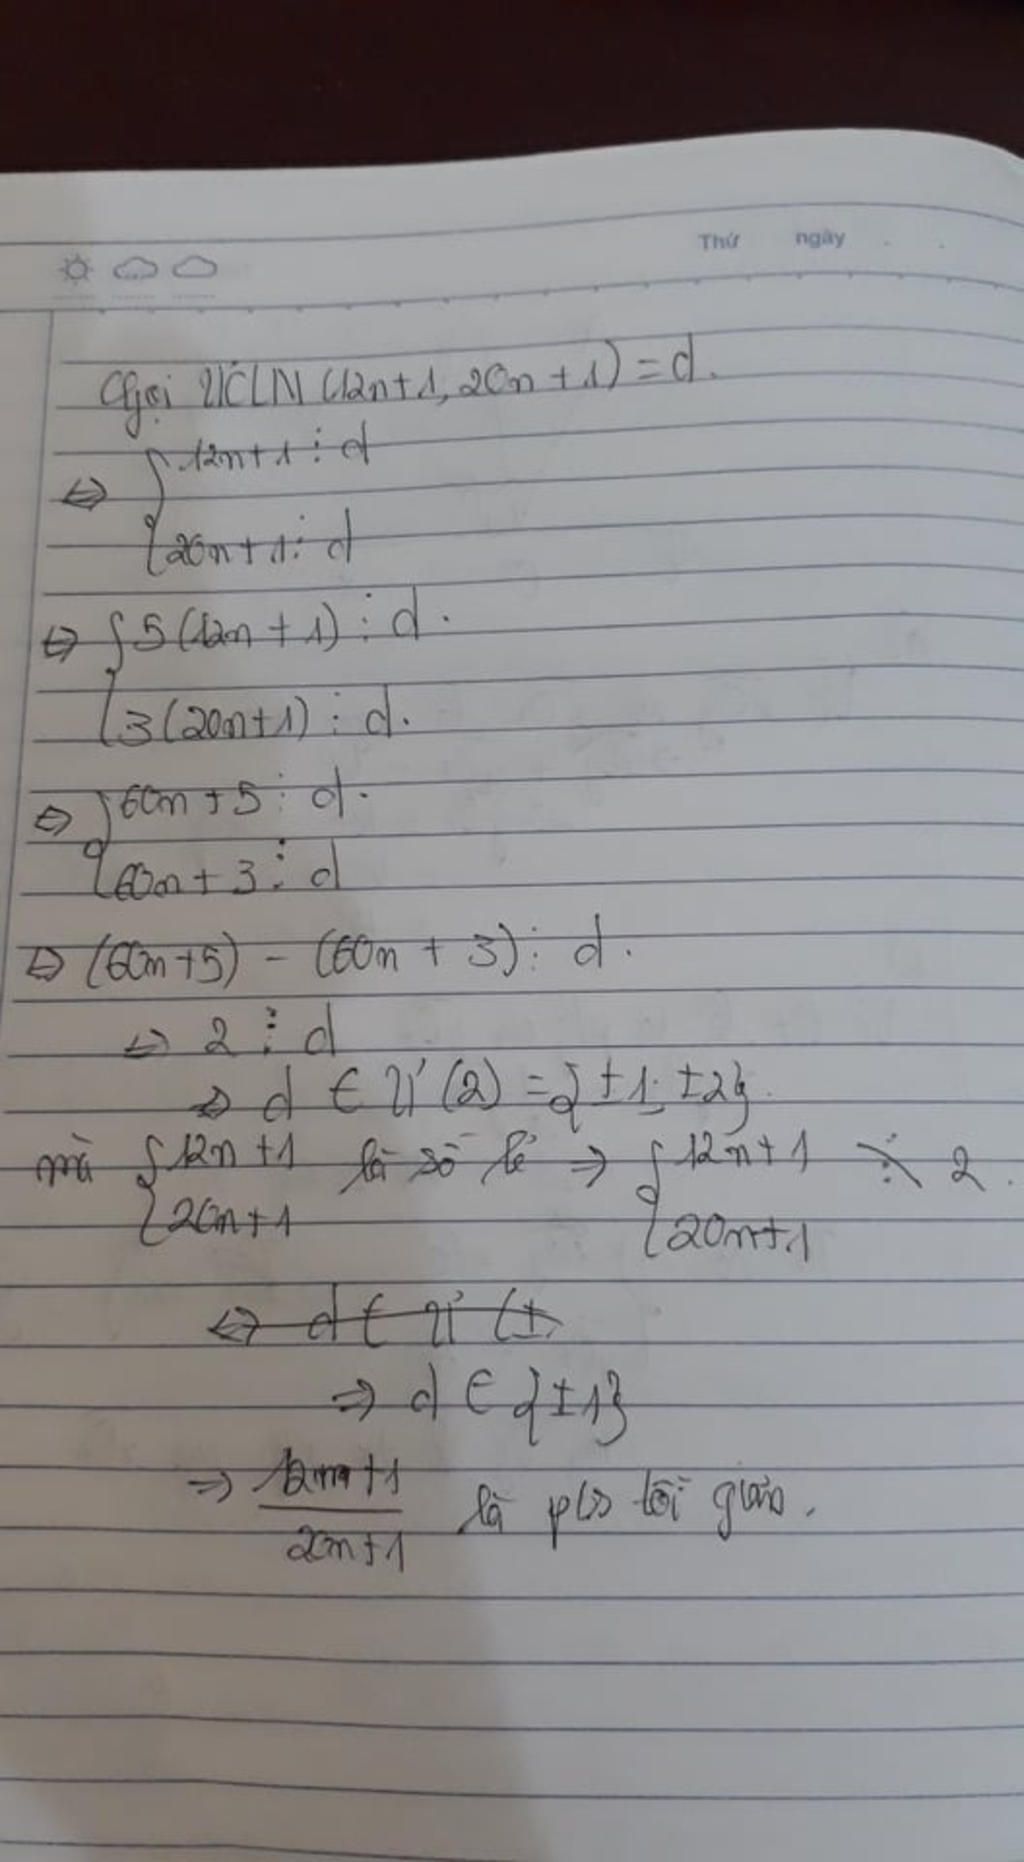 Thứ ngày
Gọi ƯCLN (12n+1, 20n+1) = d.
⇔ { 12n+1 ⋮ d
20n+1 ⋮ d
⇔ { 5(12n+1) ⋮ d.
3(20n+1) ⋮ d.
⇔ { 60n+5 ⋮ d.
60n+3 ⋮ d
⇔ (60n+5) - (60n+3) ⋮ d.
⇔ 2 ⋮ d
⇔ d ∈ Ư(2) = {±1; ±2}.
mà { 12n+1 là số lẻ ⇒ { 12n+1 ⋮̸ 2.
20n+1 20n+1
⇔ d ∈ Ư (±
⇒ d ∈ {±1}
⇒ 12n+1
20n+1 là p/s tối giản.